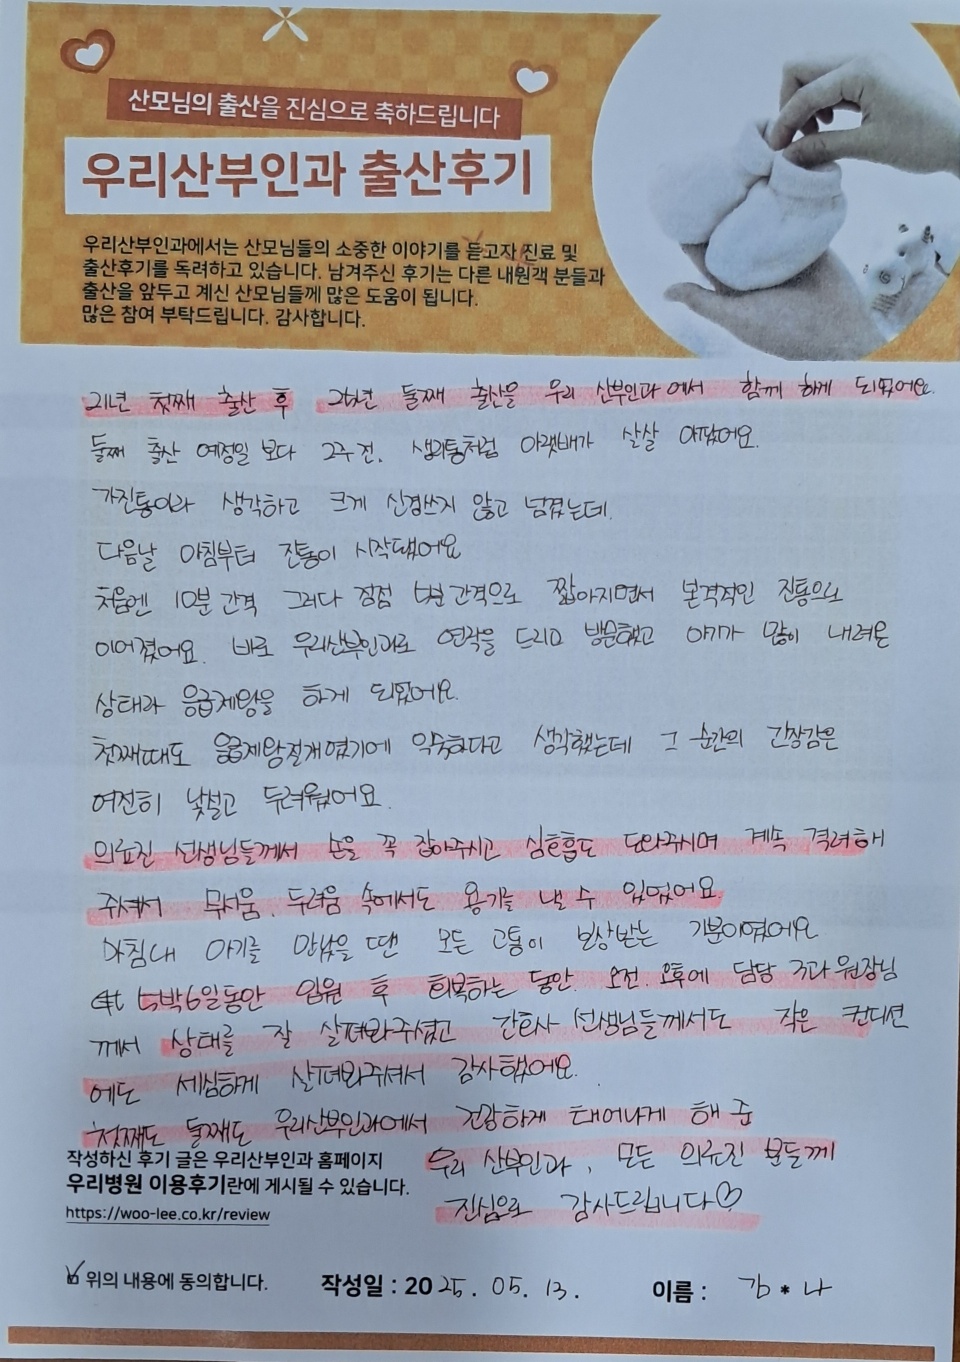 산모님의 출산을 진심으로 축하드립니다
우리산부인과 출산후기
우리산부인과에서는 산모님들의 소중한 이야기를 듣고자 진료 및
출산후기를 독려하고 있습니다. 남겨주신 후기는 다른 내원객 분들과
출산을 앞두고 계신 산모님들께 많은 도움이 됩니다.
많은 참여 부탁드립니다. 감사합니다.
21년 첫째 출산 후 25년 둘째 출산을 우리 산부인과에서 함께 하게 되었어요.
둘째 출산 예정일 보다 2주 전. 생리통처럼 아랫배가 살살 아팠어요.
가진통이라 생각하고 크게 신경쓰지 않고 넘겼는데.
다음날 아침부터 진통이 시작됐어요
처음엔 10분 간격 그러다 점점 5분 간격으로 짧아지면서 본격적인 진통으로
이어졌어요. 바로 우리산부인과로 연락을 드리고 방문했고 아기가 많이 내려온
상태라 응급제왕을 하게 되었어요.
첫째때도 응급제왕절개였기에 익숙하다고 생각했는데 그 순간의 긴장감은
여전히 낯설고 두려웠어요.
의료진 선생님들께서 손을 꼭 잡아주시고 심호흡도 도와주시며 계속 격려해
주셔서 무서움, 두려움 속에서도 용기를 낼 수 있었어요.
마침내 아기를 만났을 땐 모든 고통이 보상받는 기분이였어요.
5박6일동안 입원 후 회복하는 동안. 오전. 오후에 담당 구과 원장님
께서 상태를 잘 살펴봐주셨고 간호사 선생님들께서도 작은 컨디션
에도 세심하게 살펴봐주셔서 감사했어요.
첫째도 둘째도 우리산부인과에서 건강하게 태어나게 해 준
우리 산부인과, 모든 의료진 분들께
진심으로 감사드립니다♡
작성하신 후기 글은 우리산부인과 홈페이지
우리병원 이용후기란에 게시될 수 있습니다.
https://woo-lee.co.kr/review
위의 내용에 동의합니다. 작성일 : 2025. 05. 13. 이름 : 김*나